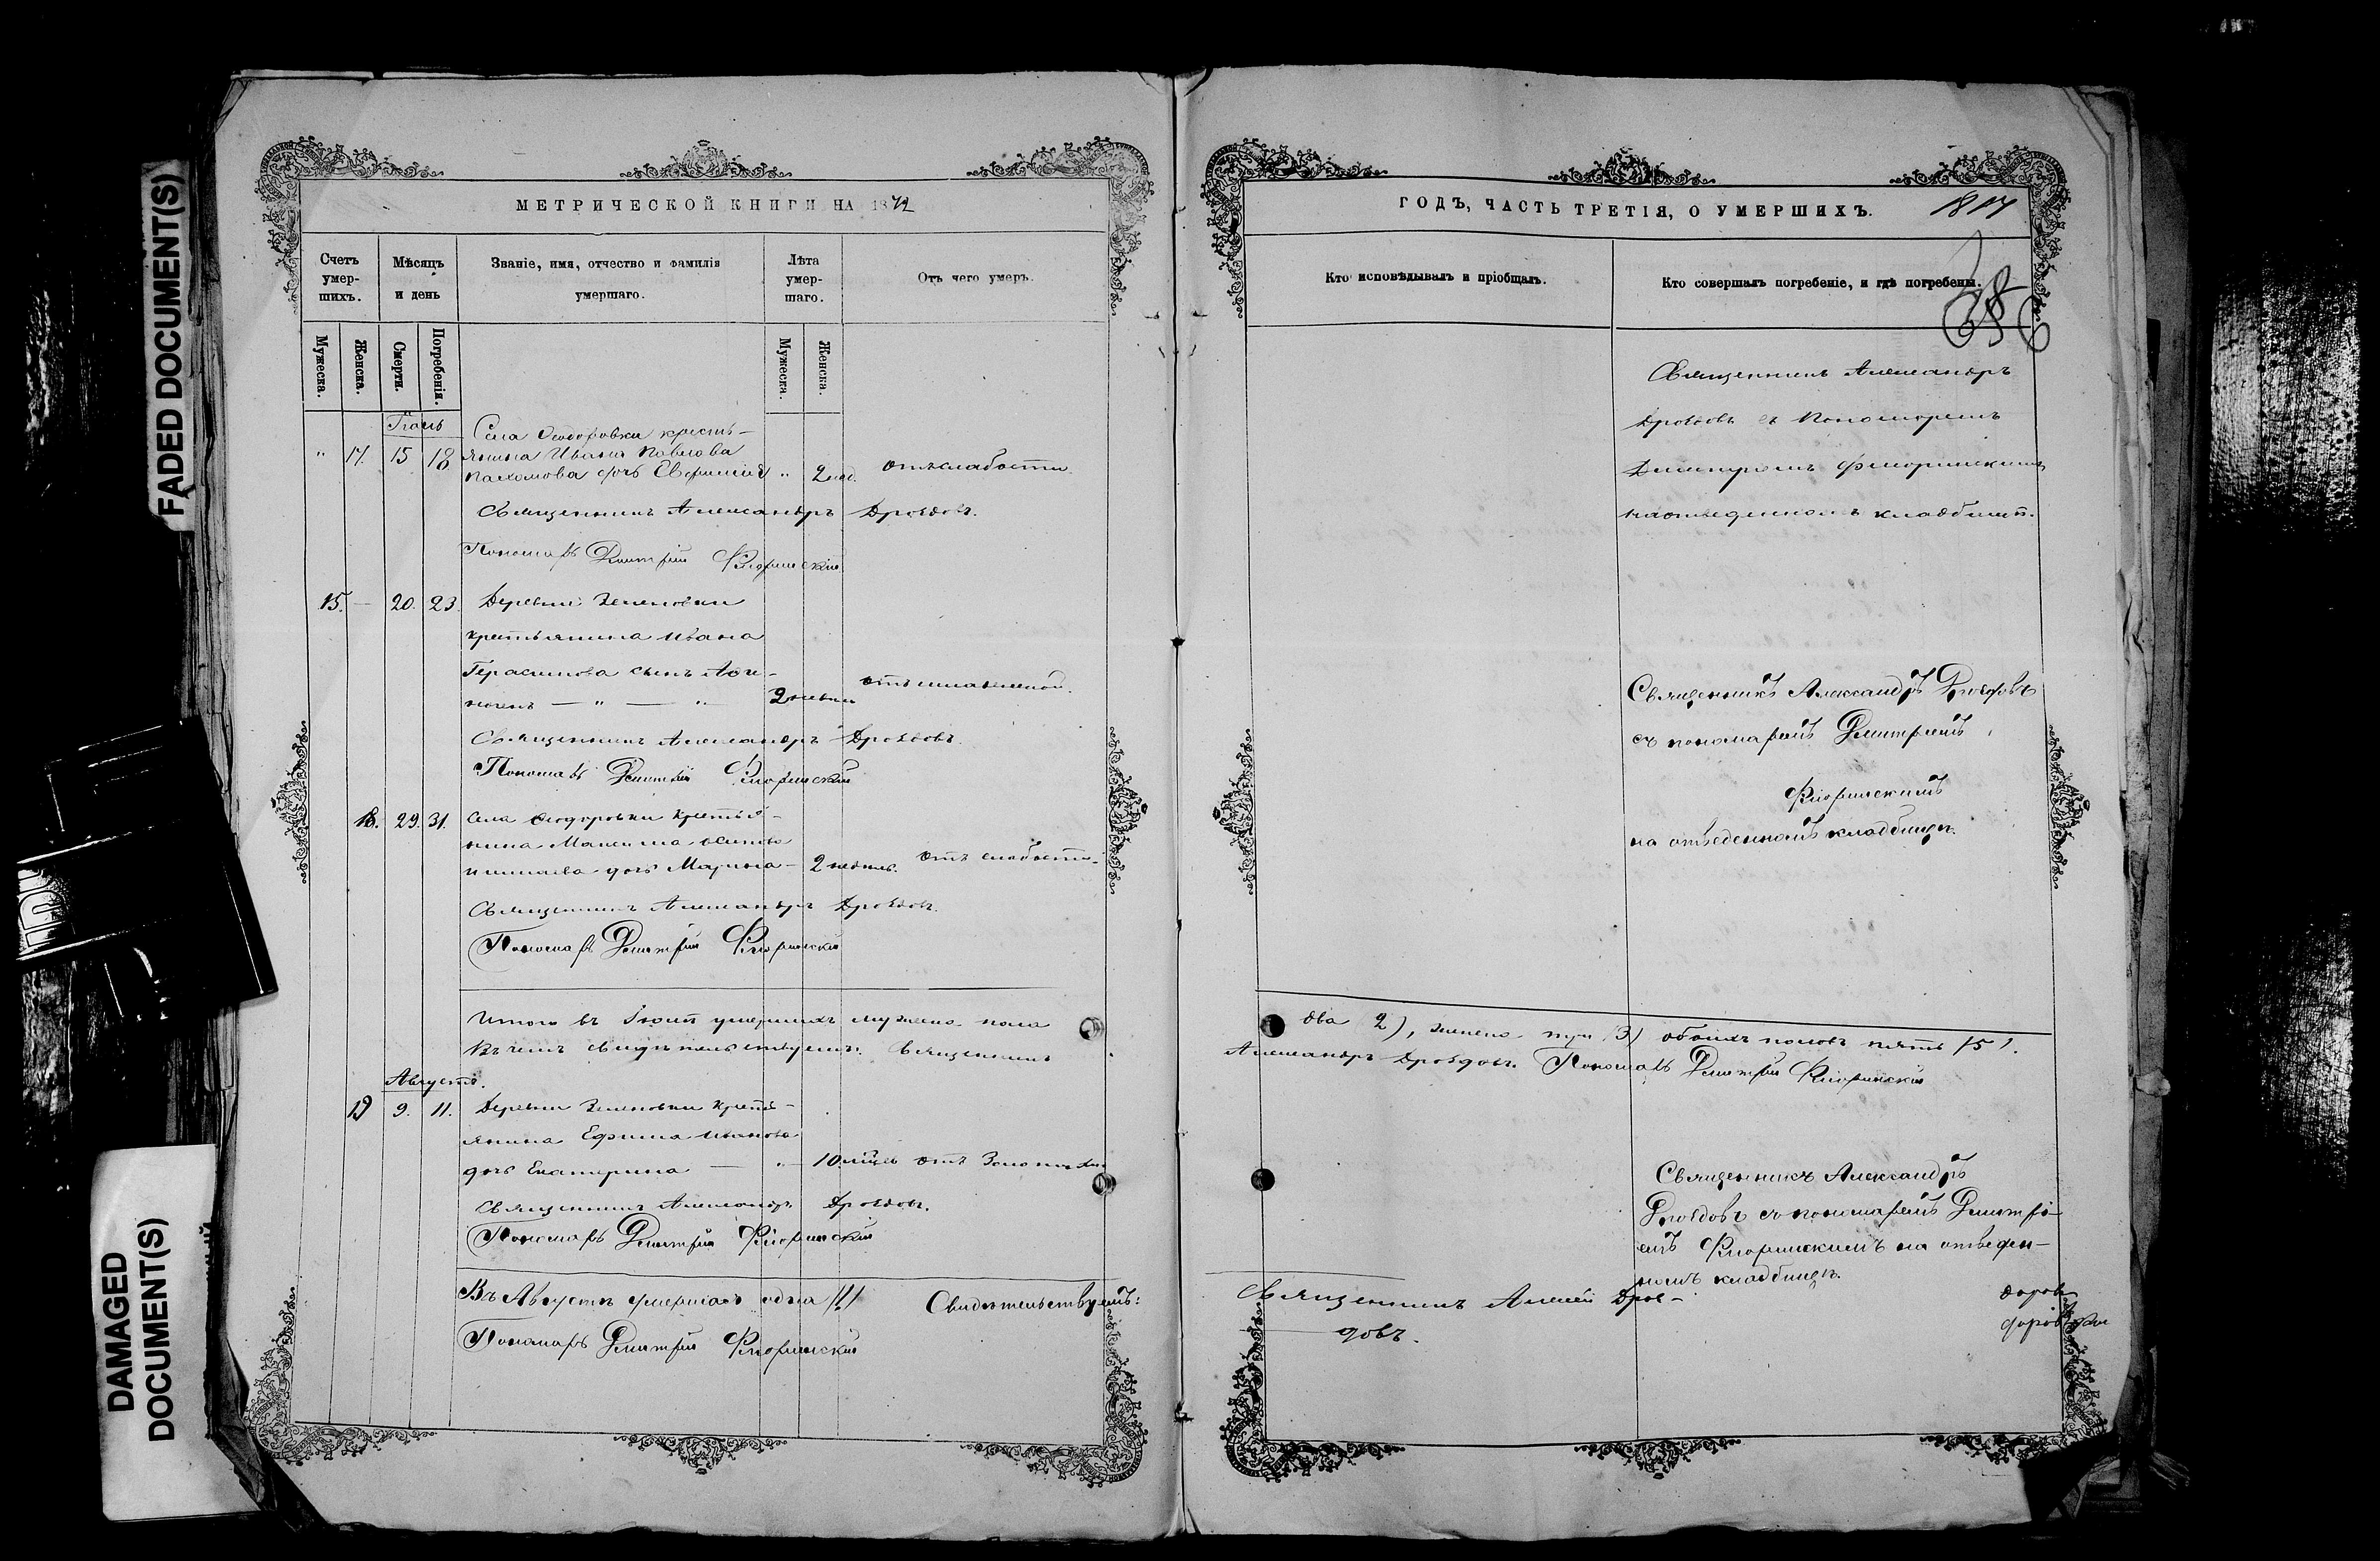 FADED DOCUMENT(S)
DAMAGED
DOCUMENT(S)
МЕТРИЧЕСКОЙ КНИГИ НА 1872
Счетъ умер-шихъ.
Мѣсяцъ и день
Званіе, имя, отчество и фамилія умершаго.
Лѣта умер-шаго.
Отъ чего умеръ.
Мужеска.
Женска.
Смерти.
Погребенія.
Мужеска.
Женска.
Села Ѳеодоровки кресть-
" 17. 15 18 янина Ивана Павлова
Пахомова дочь " 2 нед. отъ слабости.
Священникъ Александръ Дроздовъ.
Пономарь Дмитрій Флоринскій
15. — 20. 23. Деревни Зеленовки
крестьянина Ивана
Герасимова сынъ
— " — " — 2
Священникъ Александръ Дроздовъ.
Пономарь Дмитрій Флоринскій
18. 29. 31. Села Ѳеодоровки крестья-
нина Максима
дочь Марина — 2 недѣль. отъ слабости.
Священникъ Александръ Дроздовъ.
Пономарь Дмитрій Флоринскій
Итого въ Іюлѣ умершихъ мужеск. пола
Въ чемъ свидѣтельствуемъ: Священникъ
Августъ.
19 9. 11. Деревни Зеленовки кресть-
янина Ефима Иванова
дочь Екатерина — " — 10 мѣсяц. отъ
Священникъ Александръ Дроздовъ.
Пономарь Дмитрій Флоринскій
Въ Августѣ умершая одна /1/ Свидѣтельствуемъ:
Пономарь Дмитрій Флоринскій
ГОДЪ, ЧАСТЬ ТРЕТІЯ, О УМЕРШИХЪ.
Кто исповѣдывалъ и пріобщалъ.
Кто совершалъ погребеніе, и гдѣ погребены.
Священникъ Александръ
Дроздовъ съ Пономаремъ
Димитріемъ Флоринскимъ
на отведенномъ кладбищѣ.
Священникъ Александръ Дроздовъ
съ пономаремъ Дмитріемъ
Флоринскимъ
на отведенномъ кладбищѣ.
два 2), женска три (3) обоихъ половъ пять /5/.
Александръ Дроздовъ. Пономарь Дмитрій Флоринскій
Священникъ Александръ
Дроздовъ съ пономаремъ Дмитрі-
емъ Флоринскимъ на отведен-
номъ кладбищѣ.
Священникъ Алексѣй Дроз-
довъ.